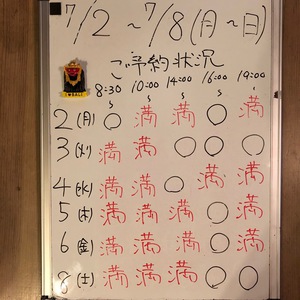 7/2~7/8(月~日)
ご予約状況
8:30~ 10:00~ 14:00~ 16:00~ 19:00~
2(月) ○ 満 満 ○ 満
3(火) 満 満 ○ ○ ○
4(水) 満 満 ○ 満 満
5(木) 満 満 満 ○ 満
6(金) 満 満 満 ○ 満
8(土) 満 満 満 ○ ○